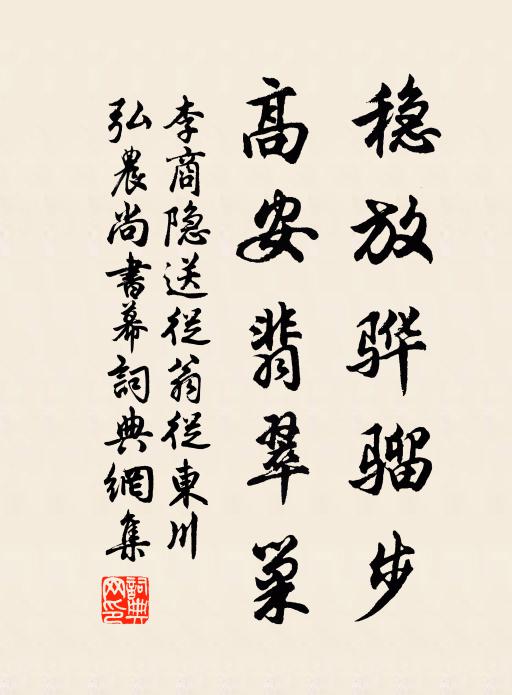 穏放骅骝步
高安翡翠巢
李商隐送從翁從東川
弘農尚書幕詞典網集